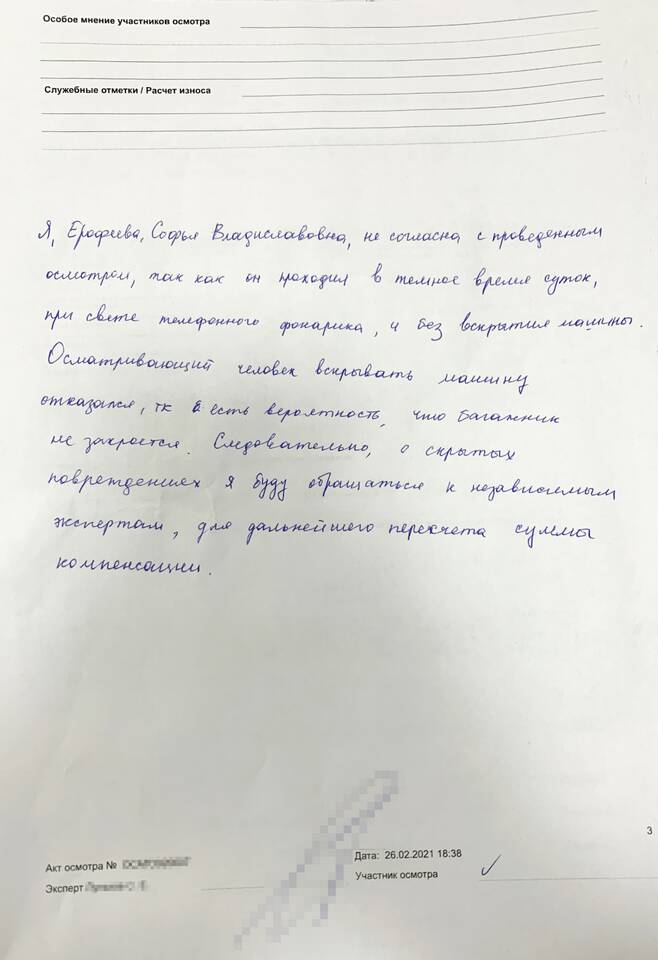 Особое мнение участников осмотра
Служебные отметки / Расчет износа
Я, Ерофеева, Софья Владиславовна, не согласна с проведенным
осмотром, так как он проходил в темное время суток,
при свете телефонного фонарика, и без вскрытия машины.
Осматривающий человек вскрывать машину
отказался, тк есть вероятность, что багажник
не закроется. Следовательно, о скрытых
повреждениях я буду обращаться к независимым
экспертам, для дальнейшего пересчета суммы
компенсации.
3
Акт осмотра №
Дата: 26.02.2021 18:38
Эксперт
Участник осмотра